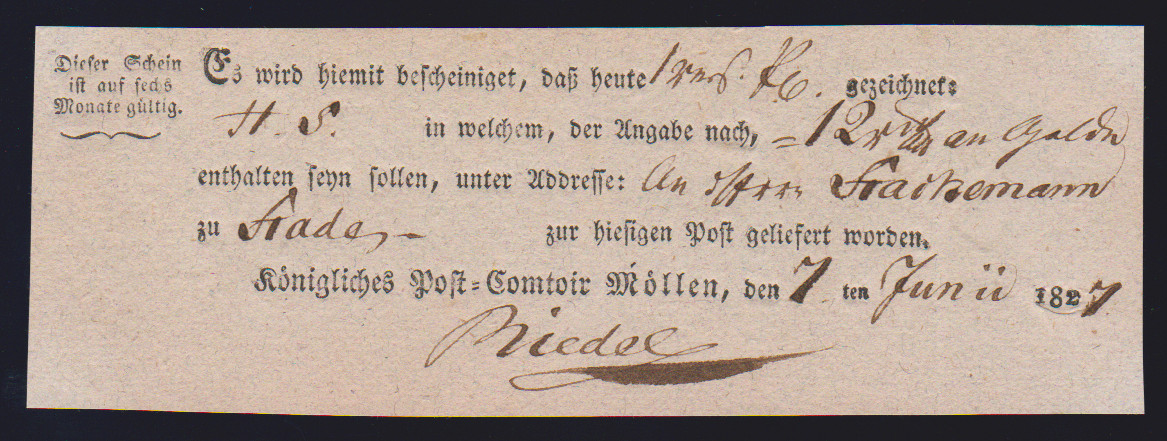 Dieser Schein
ist auf sechs
Monate gültig.
Es wird hiemit bescheiniget, daß heute 1 gezeichnet:
H. S. in welchem, der Angabe nach, = 12 an Golde
enthalten seyn sollen, unter Addresse: An Herrn Stackemann
zu Stade, - zur hiesigen Post geliefert worden.
Königliches Post-Comtoir Möllen, den 7 ten Junii 1827
Riedel